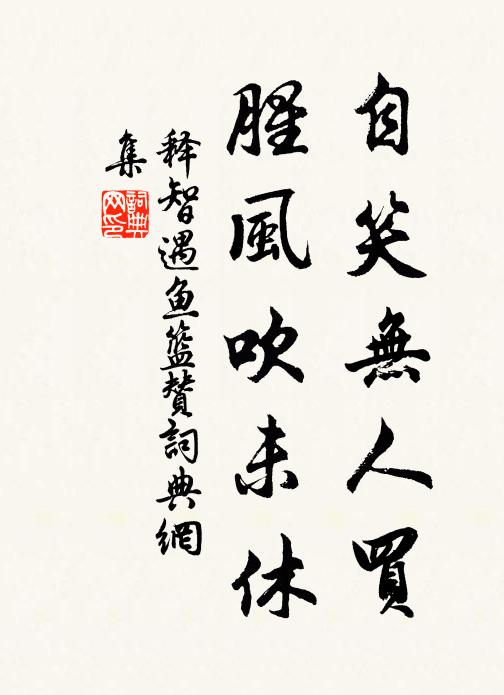 自笑無人買
腥風吹未休
释智遇魚籃贊詞典網
集
詞典
网印